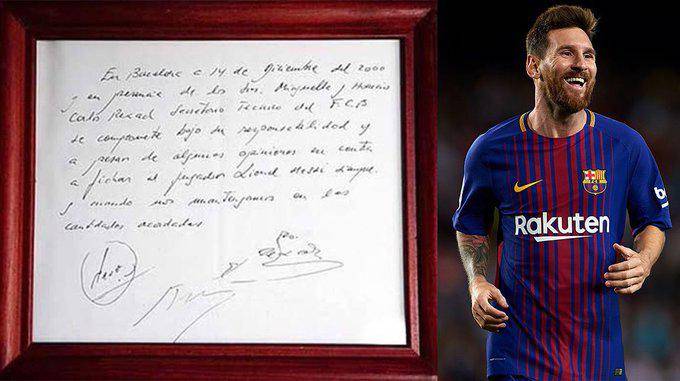 En Barcelona a 14 de Diciembre del 2000
y en presencia de los Srs. Minguella y Horacio
Carles Rexach Secretario Tecnico del F.C.B
se compromete bajo su responsabilidad y
a pesar de algunas opiniones en contra
a fichar al jugador Lionel Messi siempre
y cuando nos mantengamos en las
cantidades acordadas
Rakuten